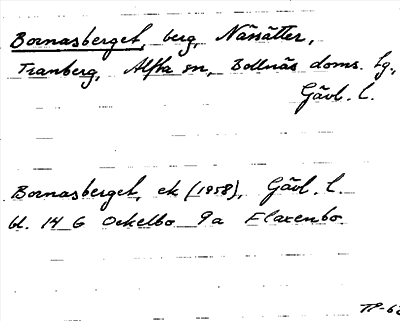 Bornasberget, berg, Nässätter,
Tranberg, Alfta sn, Bollnäs doms. hg.,
Gävl. l.
Bornasberget, ek (1958), Gävl. l.
bl. 14 G Ockelbo 9a Flaxenbo